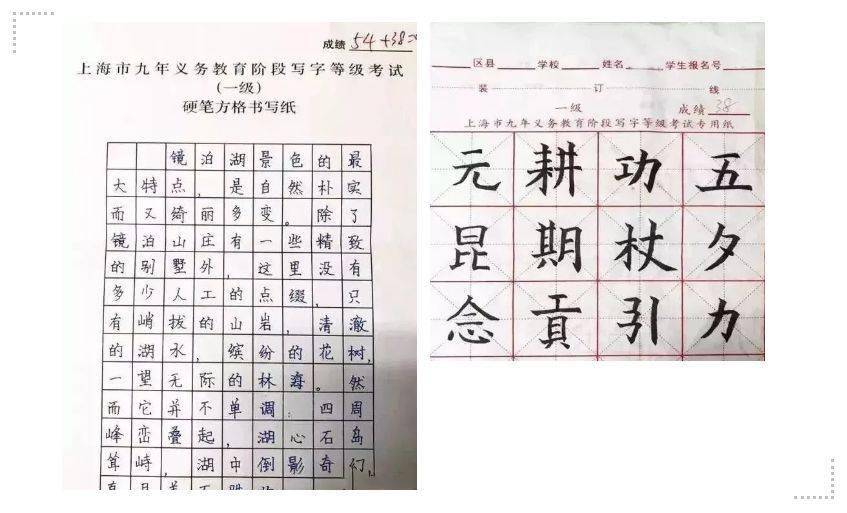 成绩 54+38=
上海市九年义务教育阶段写字等级考试
(一级)
硬笔方格书写纸
镜泊湖景色的最
大特点,是自然朴实
而又绮丽多变。除了
镜泊山庄有一些精致
的别墅外,这里没有
多少人工的点缀,只
有峭拔的山岩,清澈
的湖水,缤纷的花树,
一望无际的林海。然
而它并不单调:四周
峰峦叠起,湖心石岛
耸峙,湖中倒影奇幻,
区县 学校 姓名 学生报名号
装 订 线
一级 成绩 38
上海市九年义务教育阶段写字等级考试专用纸
元耕功五
昆期杖夕
念贡引力